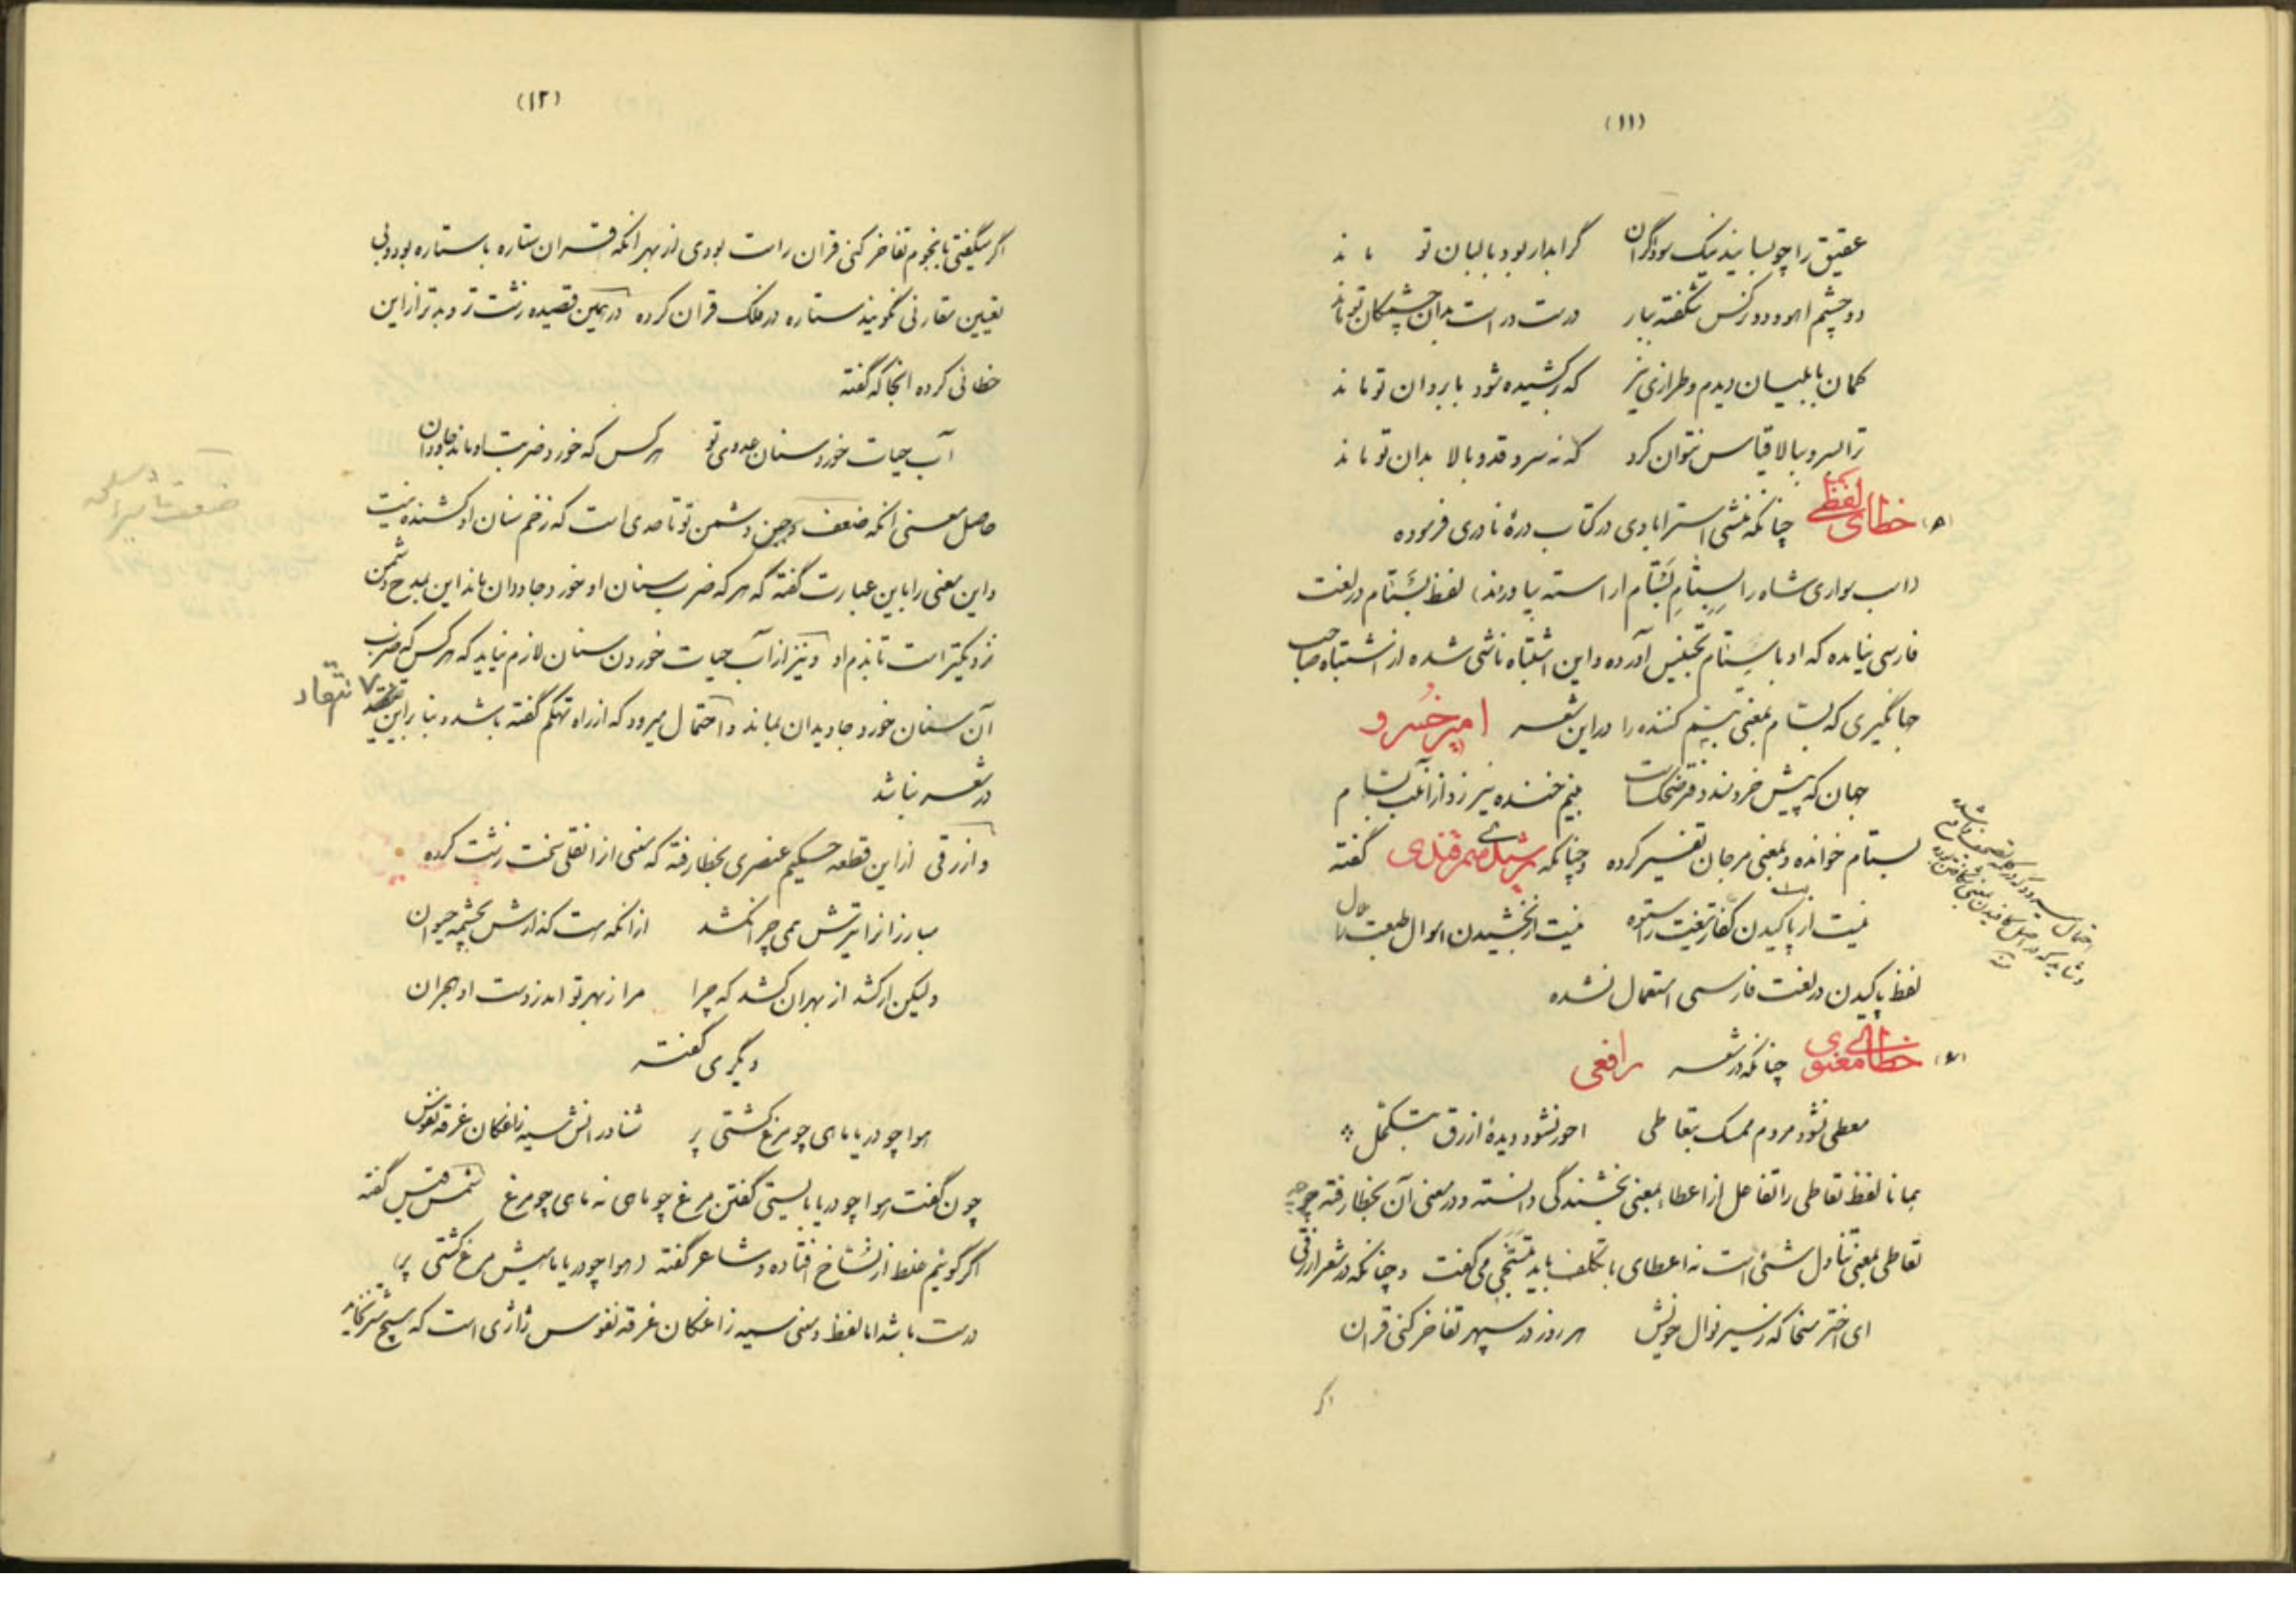 (۱۱)
عقیق را چو بسایند نیک سوده‌گران گر آبدار بود با لبان تو ماند
دو چشم آهو و دو نرگس شکفته ببار درست و راست بدان چشمکان تو ماند
کمان بابلیان دیدم و طرازی تیر که برکشیده شود بابروان تو ماند
ترا بسرو ببالا قیاس نتوان کرد که نه سرو قد و بالا بدان تو ماند
(۵) خطای لفظی چنانکه منشی استرابادی در کتاب درهٔ نادری فرموده
(اسب سواری شاه را بسِتامِ بَسّام اراسته بیاورند) لفظ بَسّتام در لغت
فارسی نیامده که او با سِتام تجنیس آورده و این اشتباه ناشی شده از اشتباه صاحب
جهانگیری که بسّام بمعنی تبسم کننده را در این شعر امیر خسرو
جهان که پیش خردمند دفتر ضحکست نیم خنده نیرزد از آن لب بسّام
بستام خوانده و بمعنی مرجان تفسیر کرده و چنانکه رشیدی سمرقندی گفته
نیست از پاکیدن گفتار تیغت را ستوه نیست از بخشیدن اموال طبعت را ملال
لفظ پاکیدن در لغت فارسی استعمال نشده
(۶) خطای معنوی چنانکه در شعر رافعی
معطی نشود مردم ممسک بتعاطی احور نشود دیدهٔ ازرق بتکحل
همانا لفظ تعاطی را تفاعل از اعطاء بمعنی بخشندگی دانسته و در معنی آن بخطا رفته چه
تعاطی بمعنی تناول شئی است نه اعطای با تکلف باید بتسخی می‌گفت و چنانکه در شعر ازرقی
ای اختر سخا که ز سیر نوال خویش هر روز در سپهر تفاخر کنی قران
اگر
(۱۲)
اگر میگفتی بانجوم تفاخر کنی قران راست بودی از بهر آنکه قران ستاره با ستاره بود و بی
تعیین مقارنی نگویند ستاره در فلک قران کرده در همین قصیده زشت تر و بدتر از این
خطائی کرده انجا که گفته
آب حیات خورد سنان عدوی تو هر کس که خورد ضربت او ماند جاودان
حاصل معنی آنکه ضعف و جبن دشمن تو تا حدی است که زخم سنان او کشنده نیست
و این معنی را باین عبارت گفته که هر که ضرب سنان او خورد جاودان ماند این بمدح دشمن
نزدیکتر است تا بذم او و نیز از آب حیات خوردن سنان لازم نیاید که هر کس که ضرب
آن سنان خورد جاویدان بماند و احتمال میرود که از راه تهکم گفته باشد و بنا براین
انتقاد
در شعر نباشد
و ازرقی از این قطعه حکیم عنصری بخطا رفته که معنی از او نقلی سخت زشت کرده
مبارزانرا تیرش همی چرا نکشد از آنکه هست گذارش بچشمه حیوان
ولیکن ار کشد از بهر آن کشد که چرا مر از بهر تو آمد ز دست او هجران
دیگری گفته
هوا چو دریا ماهی چو مرغ کشتی پر شنا در انش سیه زاغکان غرقه نفوس
چون گفت هوا چو دریا بایستی گفتن مرغ چو ماهی نه ماهی چو مرغ شمس قیس گفته
اگر گوئیم غلط از نسّاخ افتاده و شاعر گفته (هوا چو دریا ماهیش مرغ کشتی پر)
درست باشد اما لفظ و معنی سیه زاغکان غرقه نفوس ژاژی است که هیچ نخاید